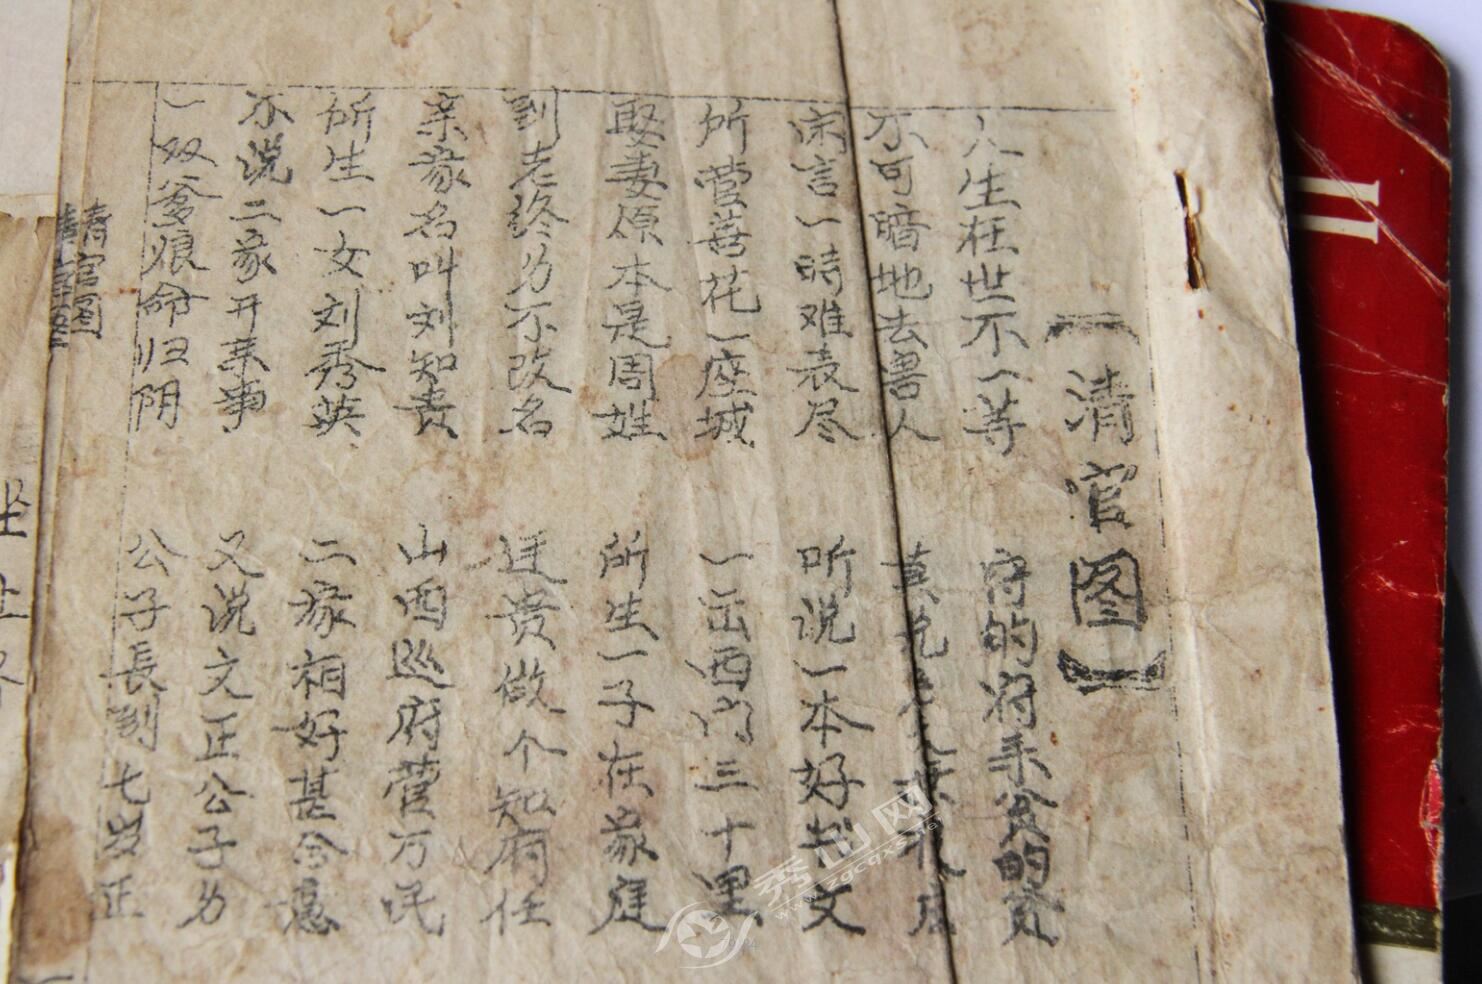 【清官图】
人生在世不一等 府的府来贫的贫
不可暗地去害人
闲言一時难表尽 听说一本好书文
所管善花一座城 一出西门三十里
娶妻原本是周姓 所生一子在家庭
到老终为不改名 进贵做个知府任
亲家名叫刘知贵 山西巡府管万民
所生一女刘秀英 二家相好甚合意
不说二家开亲事 又说文正公子为
一双爹娘命归阴 公子長到七岁正
清官图
秀山网
www.zgcqxs.net